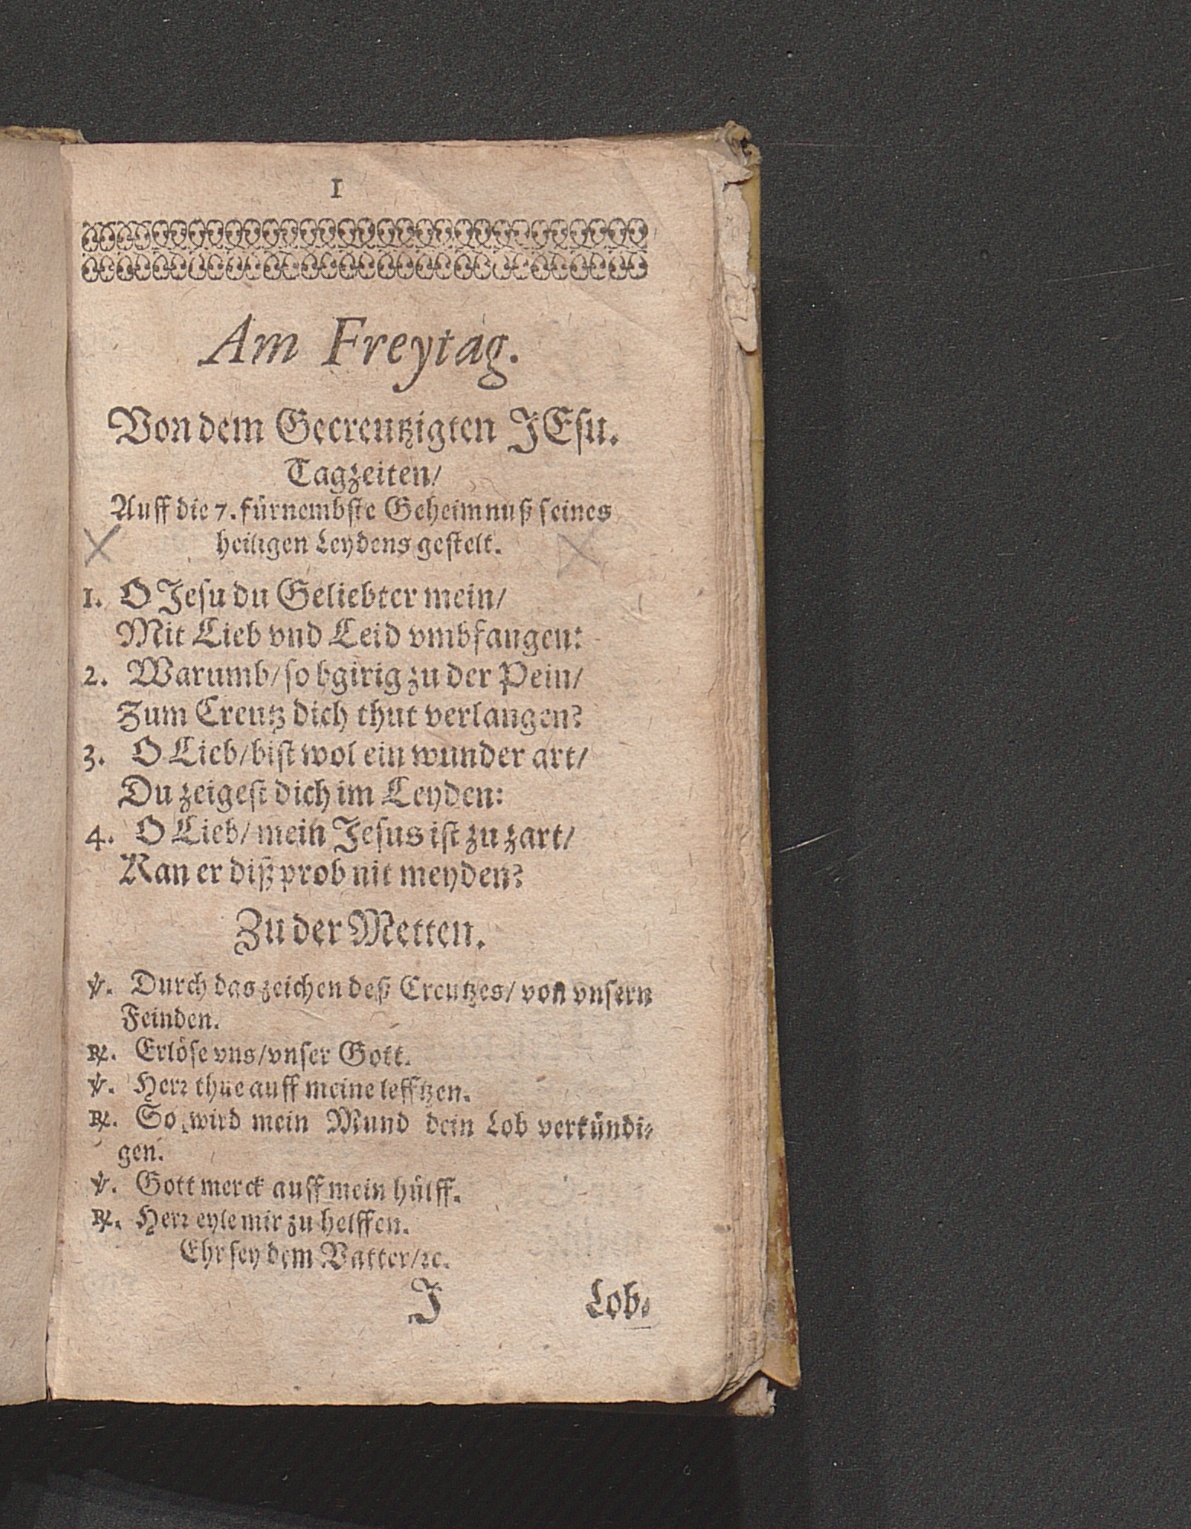 1
Am Freytag.
Von dem Gecreutzigten JEsu.
Tagzeiten/
Auff die 7. fürnembste Geheimnuß seines
heiligen Leydens gestelt.
1. O Jesu du Geliebter mein/
Mit Lieb vnd Leid vmbfangen:
2. Warumb/ so bgirig zu der Pein/
Zum Creutz dich thut verlangen?
3. O Lieb/ bist wol ein wunder art/
Du zeigest dich im Leyden:
4. O Lieb/ mein Jesus ist zu zart/
Kan er diß prob nit meyden?
Zu der Metten.
℣. Durch das zeichen deß Creutzes/ von vnsern
Feinden.
℟. Erlöse vns/ vnser Gott.
℣. Herr thue auff meine lefftzen.
℟. So wird mein Mund dein Lob verkündi-
gen.
℣. Gott merck auff mein hülff.
℟. Herr eyle mir zu helffen.
Ehr sey dem Vatter/ ꝛc.
J Lob-